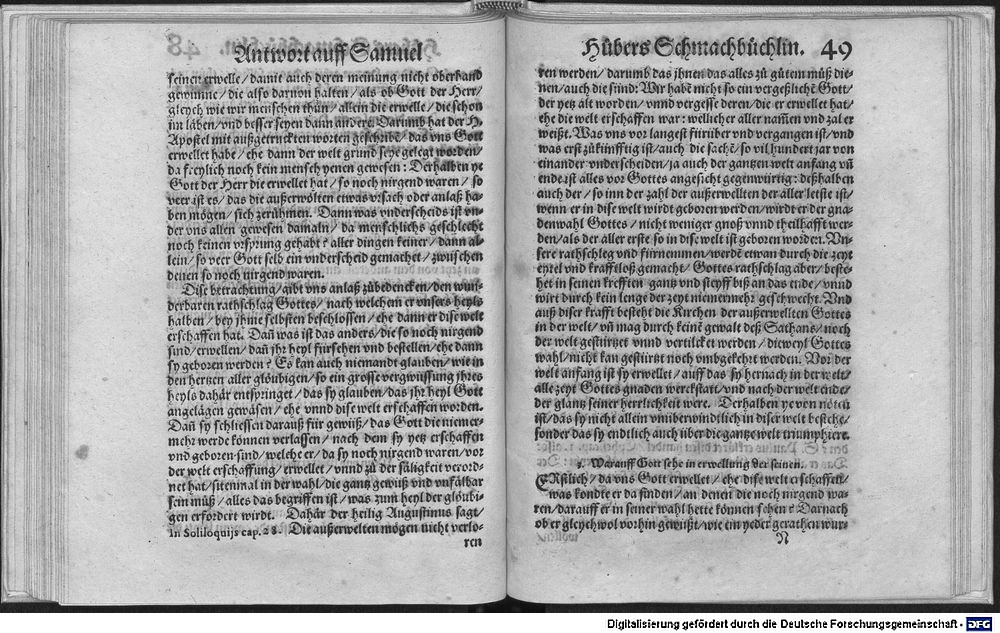 Antwort auff Samuel
seinen erwelle / damit auch deren meinung nicht oberhand
gewinne / die also daruon halten / als ob Gott der Herr /
gleych wie wir menschen thůn / allein die erwelle / die schon
im läben / vnd besser seyen dann andere. Darumb hat der H.
Apostel mit außgetruckten worten geschribẽ / das vns Gott
erwellet habe / ehe dann der welt grund seye gelegt worden /
da freylich noch kein mensch yenen gewesen : Derhalben ye
Gott der Herr die erwellet hat / so noch nirgend waren / so
veer ist es / das die außerwölten etwas vrsach oder anlaß ha-
ben mögen / sich zerühmen. Dann was vnderscheids ist vn-
der vns allen gewesen damaln / da menschlichs geschlecht
noch keinen vrsprung gehabt ? aller dingen keiner / dann al-
lein / so veer Gott selb ein vnderscheid gemachet / zwüschen
denen so noch nirgend waren.
Dise betrachtung / gibt vns anlaß zůbedencken / den wun-
derbaren rathschlag Gottes / nach welchem er vnsers heyls
halben / bey jhme selbsten beschlossen / ehe dann er dise welt
erschaffen hat. Dañ was ist das anders / die so noch nirgend
sind / erwellen / dañ jhr heyl fürsehen vnd bestellen / ehe dann
sy geboren werden ? Es kan auch niemandt glauben / wie in
den hertzen aller glöubigen / so ein grosse vergwüssung jhres
heyls dahär entspringet / das sy glauben / das jhr heyl Gott
angelägen gewäsen / ehe vnnd dise welt erschaffen worden.
Dañ sy schliessen darauß für gewüß / das Gott die niemer-
mehr werde können verlassen / nach dem sy yetz erschaffen
vnd geboren sind / welche er / da sy noch nirgend waren / vor
der welt erschaffung / erwellet / vnnd zů der säligkeit verord-
net hat / sitenmal in der wahl / die gantz gewüß vnd vnfälbar
sein můß / alles das begriffen ist / was zum heyl der glöubi-
gen erfordert wirdt. Dahär der heilig Augustinus sagt
in Soliloquijs cap. 28. Die außerwelten mögen nicht verlo-
ren
Hůbers Schmachbüchlin. 49
ren werden / darumb das jhnen das alles zů gůtem můß die-
nen / auch die sünd : Wir habẽ nicht so ein vergeßlichẽ Gott /
der yetz alt worden / vnnd vergesse deren / die er erwellet hat /
ehe die welt erschaffen war : wellicher aller namen vnd zal er
weißt. Was vns vor langest fürüber vnd vergangen ist / vnd
was erst zůkünfftig ist / auch die sachẽ / so vil hundert jar von
einander vnderscheiden / ja auch der gantzen welt anfang vñ
ende ist alles vor Gottes angesicht gegenwürtig : deßhalben
auch der / so inn der zahl der außerwellten der aller letste ist /
wenn er in dise welt wirdt geboren werden / wirdt er der gna-
denwahl Gottes / nicht weniger gnoß vnnd theilhafft wer-
den / als der aller erste so in dise welt ist geboren worden. Vn-
sere rathschleg vnd fürnemmen / werdẽ etwan durch die zeyt
eytel vnd krafftloß gemacht / Gottes rathschlag aber / beste-
het in seinen krefften gantz vnd steyff biß an das ende / vnnd
wirt durch kein lenge der zeyt niemermehr geschwecht. Vnd
auß diser krafft besteht die Kirchen der außerwellten Gottes
in der welt / vñ mag durch keinẽ gewalt deß Sathans / noch
der welt gestürtzet vnnd vertilcket werden / dieweyl Gottes
wahl / nicht kan gestürtzt noch vmbgekehrt werden. Vor der
welt anfang ist sy erwellet / auff das sy hernach in der welt /
alle zeyt Gottes gnaden werckstatt / vnd nach der welt ende /
der glantz seiner herrlichkeit were. Derhalben ye von nötẽ
ist / das sy nicht allein vnüberwindtlich in diser welt bestehe /
sonder das sy endtlich auch über die gantze welt triumphiere.
3. Warauff Gott sehe in erwellung der seinen.
ERstlich / da vns Gott erwellet / ehe dise welt erschaffen /
was kondte er da finden / an denen die noch nirgend wa-
ren / darauff er in seiner wahl hette können sehen ? Darnach
ob er gleych wol vorhin gewüßt / wie ein yeder gerathen wur-
N
Digitalisierung gefördert durch die Deutsche Forschungsgemeinschaft - DFG